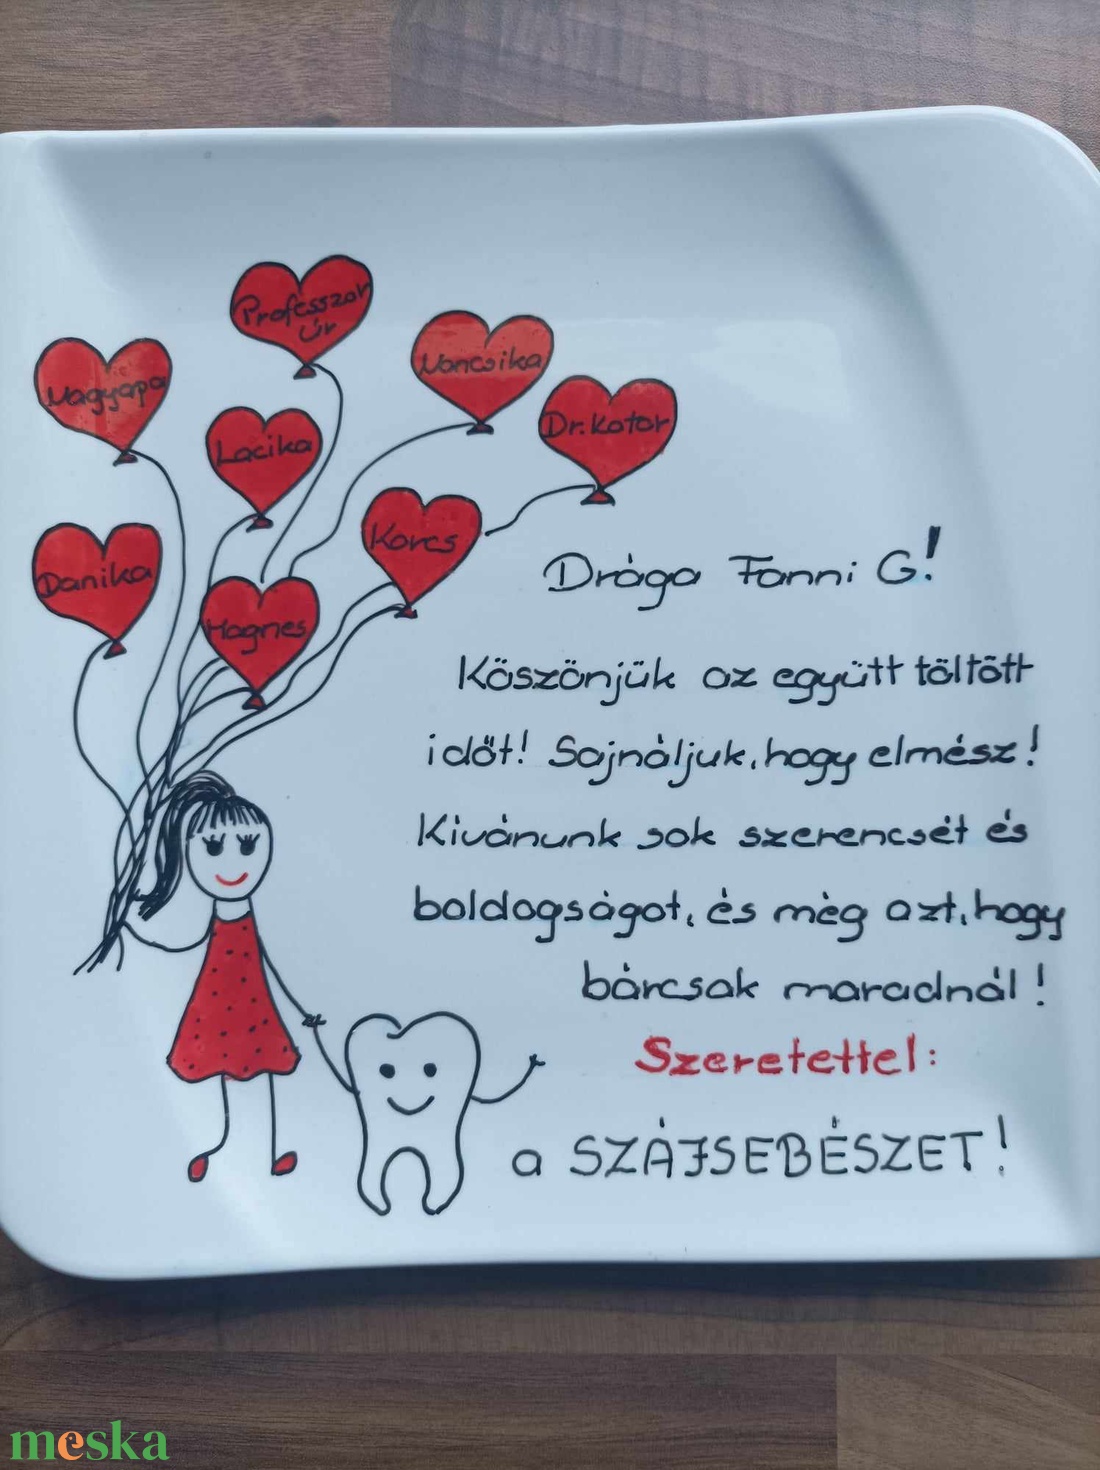 Professzor
Úr
Nagyapa
Noncsika
Dr. Kotor
Lacika
Korcs
Danika
Hagnes
Drága Fanni G!
Köszönjük az együtt töltött
időt! Sajnáljuk, hogy elmész!
Kivánunk sok szerencsét és
boldogságot, és még azt, hogy
bárcsak maradnál!
Szeretettel:
a SZÁJSEBÉSZET!
meska